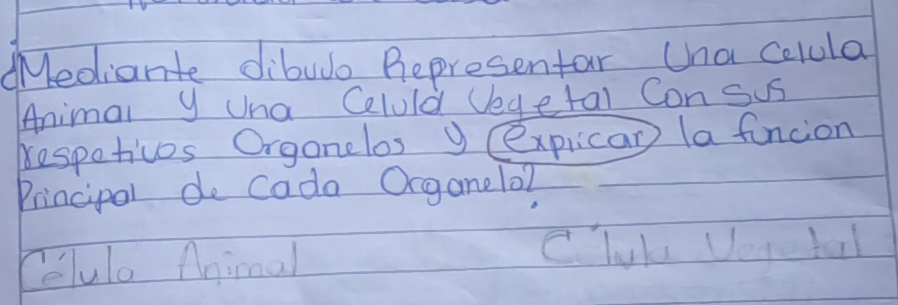 ¿Mediante dibujo Representar Una Celula
Animal y Una Celula Vegetal Con sus
respetivos Organelos y explicar la fincion
Principal de Cada Organelo?
Célula Animal Célula Vegetal